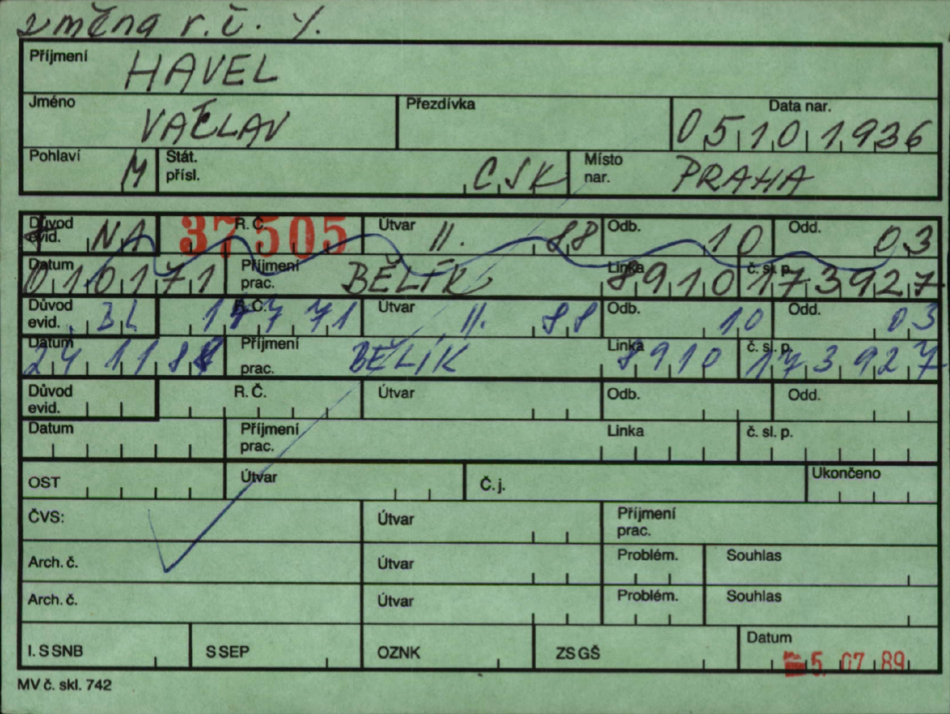 změna r.č. %.
Příjmení HAVEL
Jméno VÁCLAV Přezdívka Data nar. 05 10 1936
Pohlaví M Stát. přísl. CSK Místo nar. PRAHA
Důvod evid. NA R. Č. 37505 Útvar II. 88 Odb. 10 Odd. 03
Datum 010171 Příjmení prac. BĚLÍK Linka 8910 č. sl. p. 173927
Důvod evid. BL R. Č. Útvar II. 88 Odb. 10 Odd. 03
Datum 24 11 88 Příjmení prac. BĚLÍK Linka 8910 č. sl. p. 173927
Důvod evid. R. Č. Útvar Odb. Odd.
Datum Příjmení prac. Linka č. sl. p.
OST Útvar Č.j. Ukončeno
ČVS: Útvar Příjmení prac.
Arch. č. Útvar Problém. Souhlas
Arch. č. Útvar Problém. Souhlas
I. S SNB S SEP OZNK ZS GŠ Datum 5. 07. 89
MV č. skl. 742